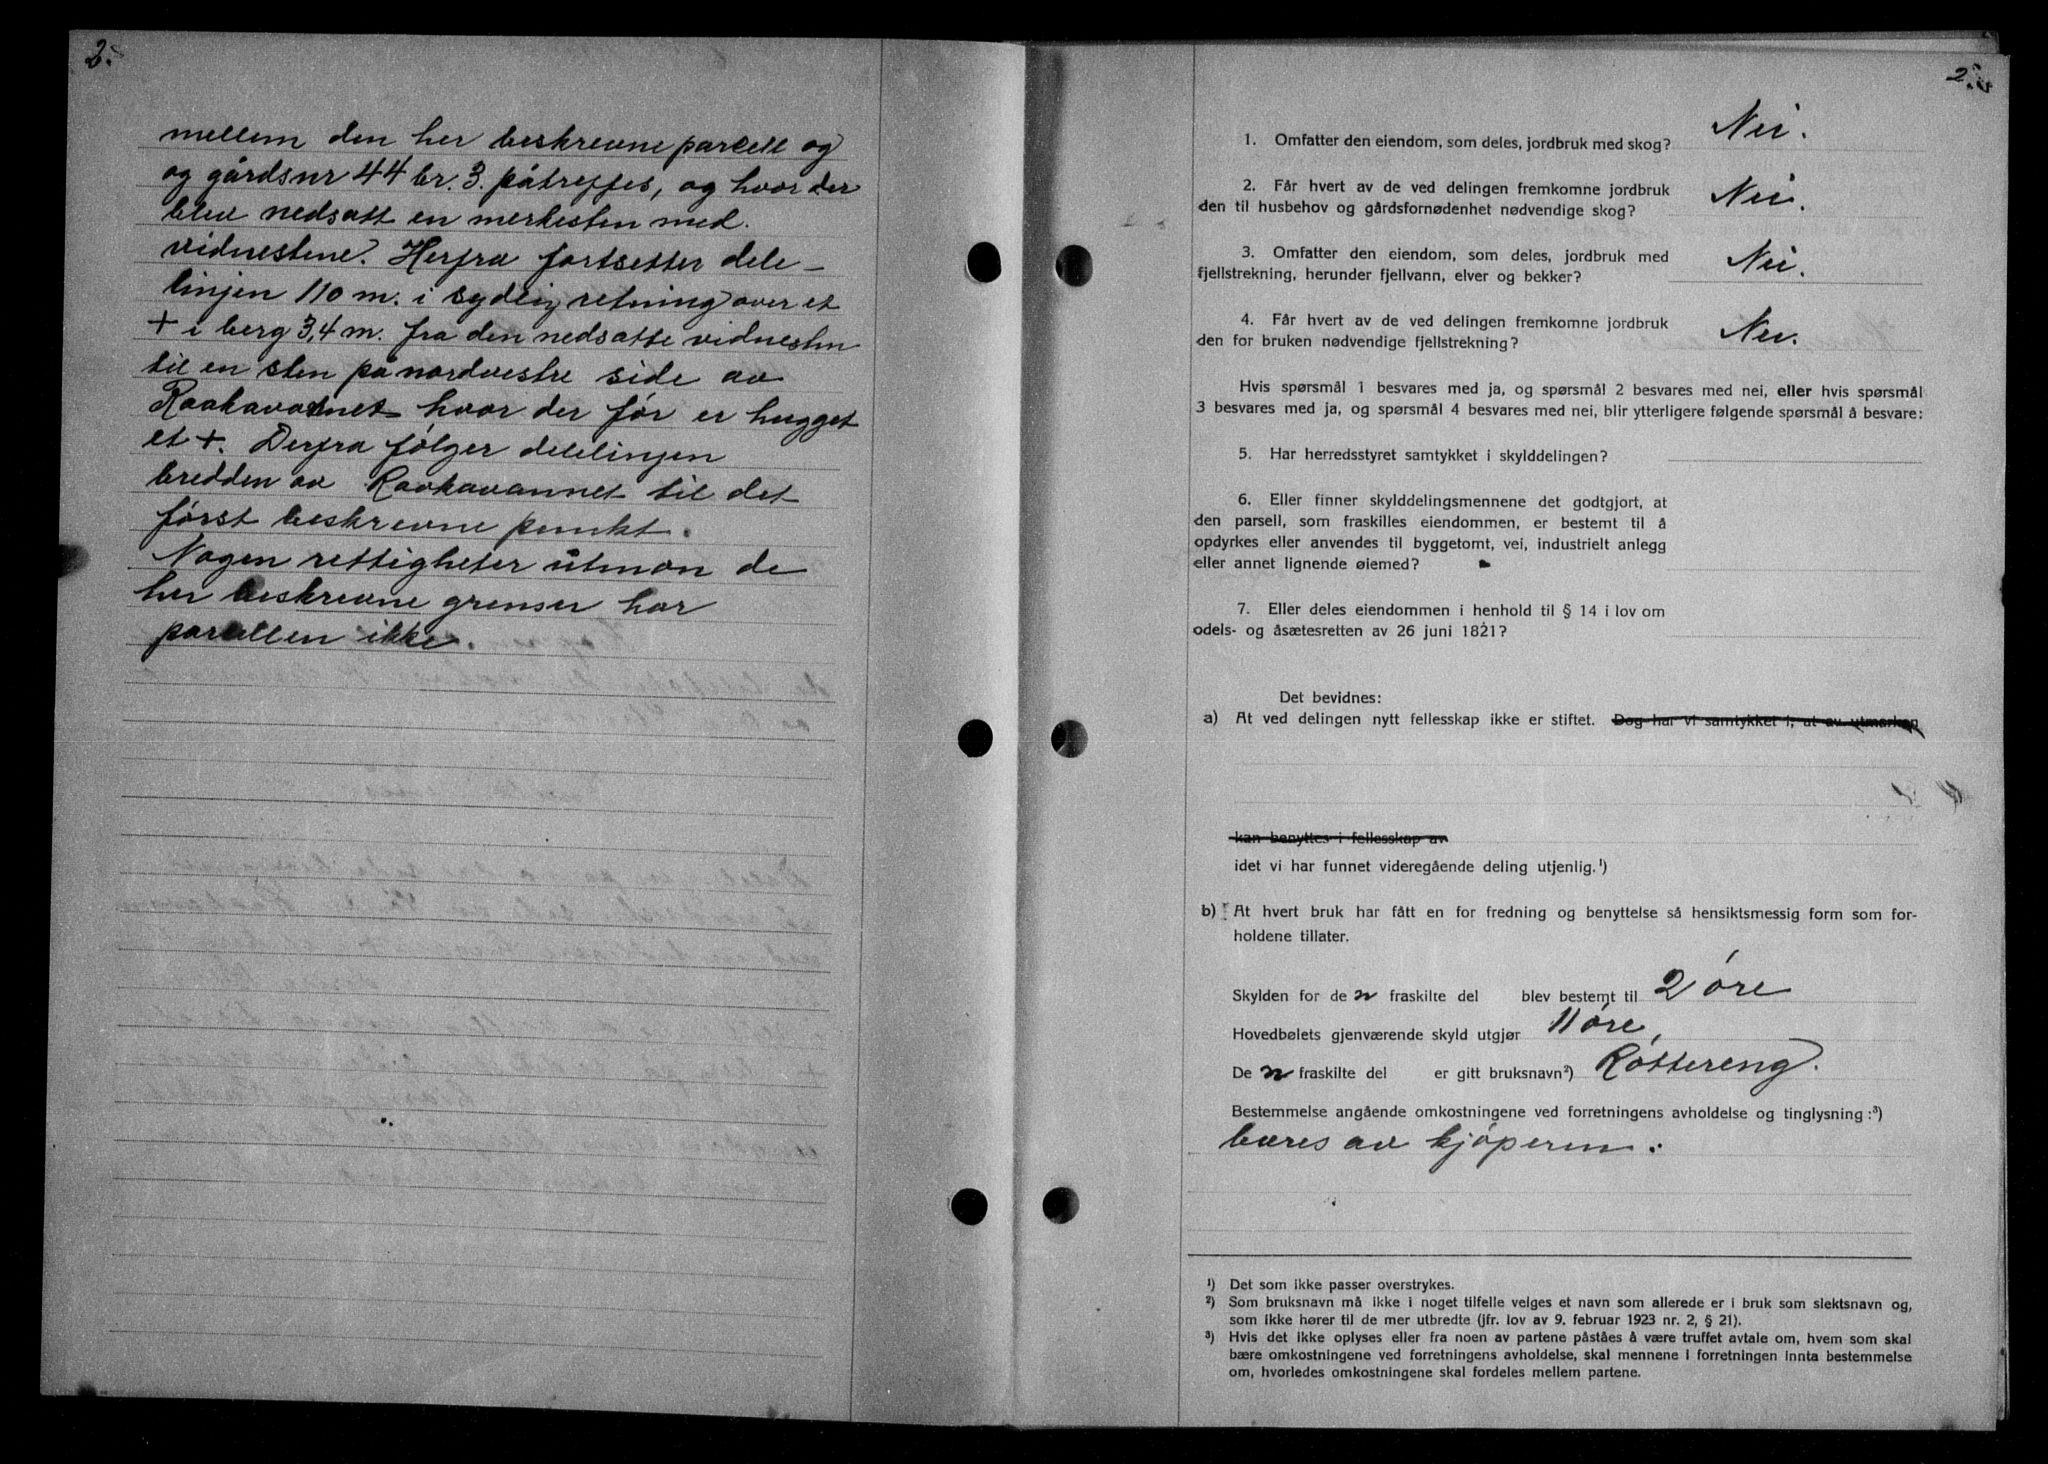 2.
mellem den her beskrevne parcell og
og gårdsnr 44 br. 3. påtreffes, og hvor der
blev nedsatt en merkesten med
vidnestene. Herfra fortsetter dele-
linjen 110 m. i sydlig retning over et
+ i berg 3,4 m. fra den nedsatte vidnesten
til en sten på nordvestre side av
Raakavatnet hvor der før er hugget
et +. Derfra følger delelinjen
bredden av Raakavannet til det
først beskrevne punkt.
Nogen rettigheter utman de
her beskrevne grenser har
parcellen ikke.
2.
1. Omfatter den eiendom, som deles, jordbruk med skog? Nei.
2. Får hvert av de ved delingen fremkomne jordbruk
den til husbehov og gårdsfornødenhet nødvendige skog? Nei.
3. Omfatter den eiendom, som deles, jordbruk med
fjellstrekning, herunder fjellvann, elver og bekker? Nei.
4. Får hvert av de ved delingen fremkomne jordbruk
den for bruken nødvendige fjellstrekning? Nei.
Hvis spørsmål 1 besvares med ja, og spørsmål 2 besvares med nei, eller hvis spørsmål
3 besvares med ja, og spørsmål 4 besvares med nei, blir ytterligere følgende spørsmål å besvare:
5. Har herredsstyret samtykket i skylddelingen?
6. Eller finner skylddelingsmennene det godtgjort, at
den parsell, som fraskilles eiendommen, er bestemt til å
opdyrkes eller anvendes til byggetomt, vei, industrielt anlegg
eller annet lignende øiemed?
7. Eller deles eiendommen i henhold til § 14 i lov om
odels- og åsætesretten av 26 juni 1821?
Det bevidnes:
a) At ved delingen nytt fellesskap ikke er stiftet. Dog har vi samtykket i, at av utmarken
kan benyttes i fellesskap av
idet vi har funnet videregående deling utjenlig.¹)
b) At hvert bruk har fått en for fredning og benyttelse så hensiktsmessig form som for-
holdene tillater.
Skylden for de n fraskilte del blev bestemt til 2 øre
Hovedbølets gjenværende skyld utgjør 11 øre.
De n fraskilte del er gitt bruksnavn²) Røttereng.
Bestemmelse angående omkostningene ved forretningens avholdelse og tinglysning:³)
bæres av kjøperen.
¹) Det som ikke passer overstrykes.
²) Som bruksnavn må ikke i noget tilfelle velges et navn som allerede er i bruk som slektsnavn og,
som ikke hører til de mer utbredte (jfr. lov av 9. februar 1923 nr. 2, § 21).
³) Hvis det ikke oplyses eller fra noen av partene påståes å være truffet avtale om, hvem som skal
bære omkostningene ved forretningens avholdelse, skal mennene i forretningen innta bestemmelse
om, hvorledes omkostningene skal fordeles mellem partene.